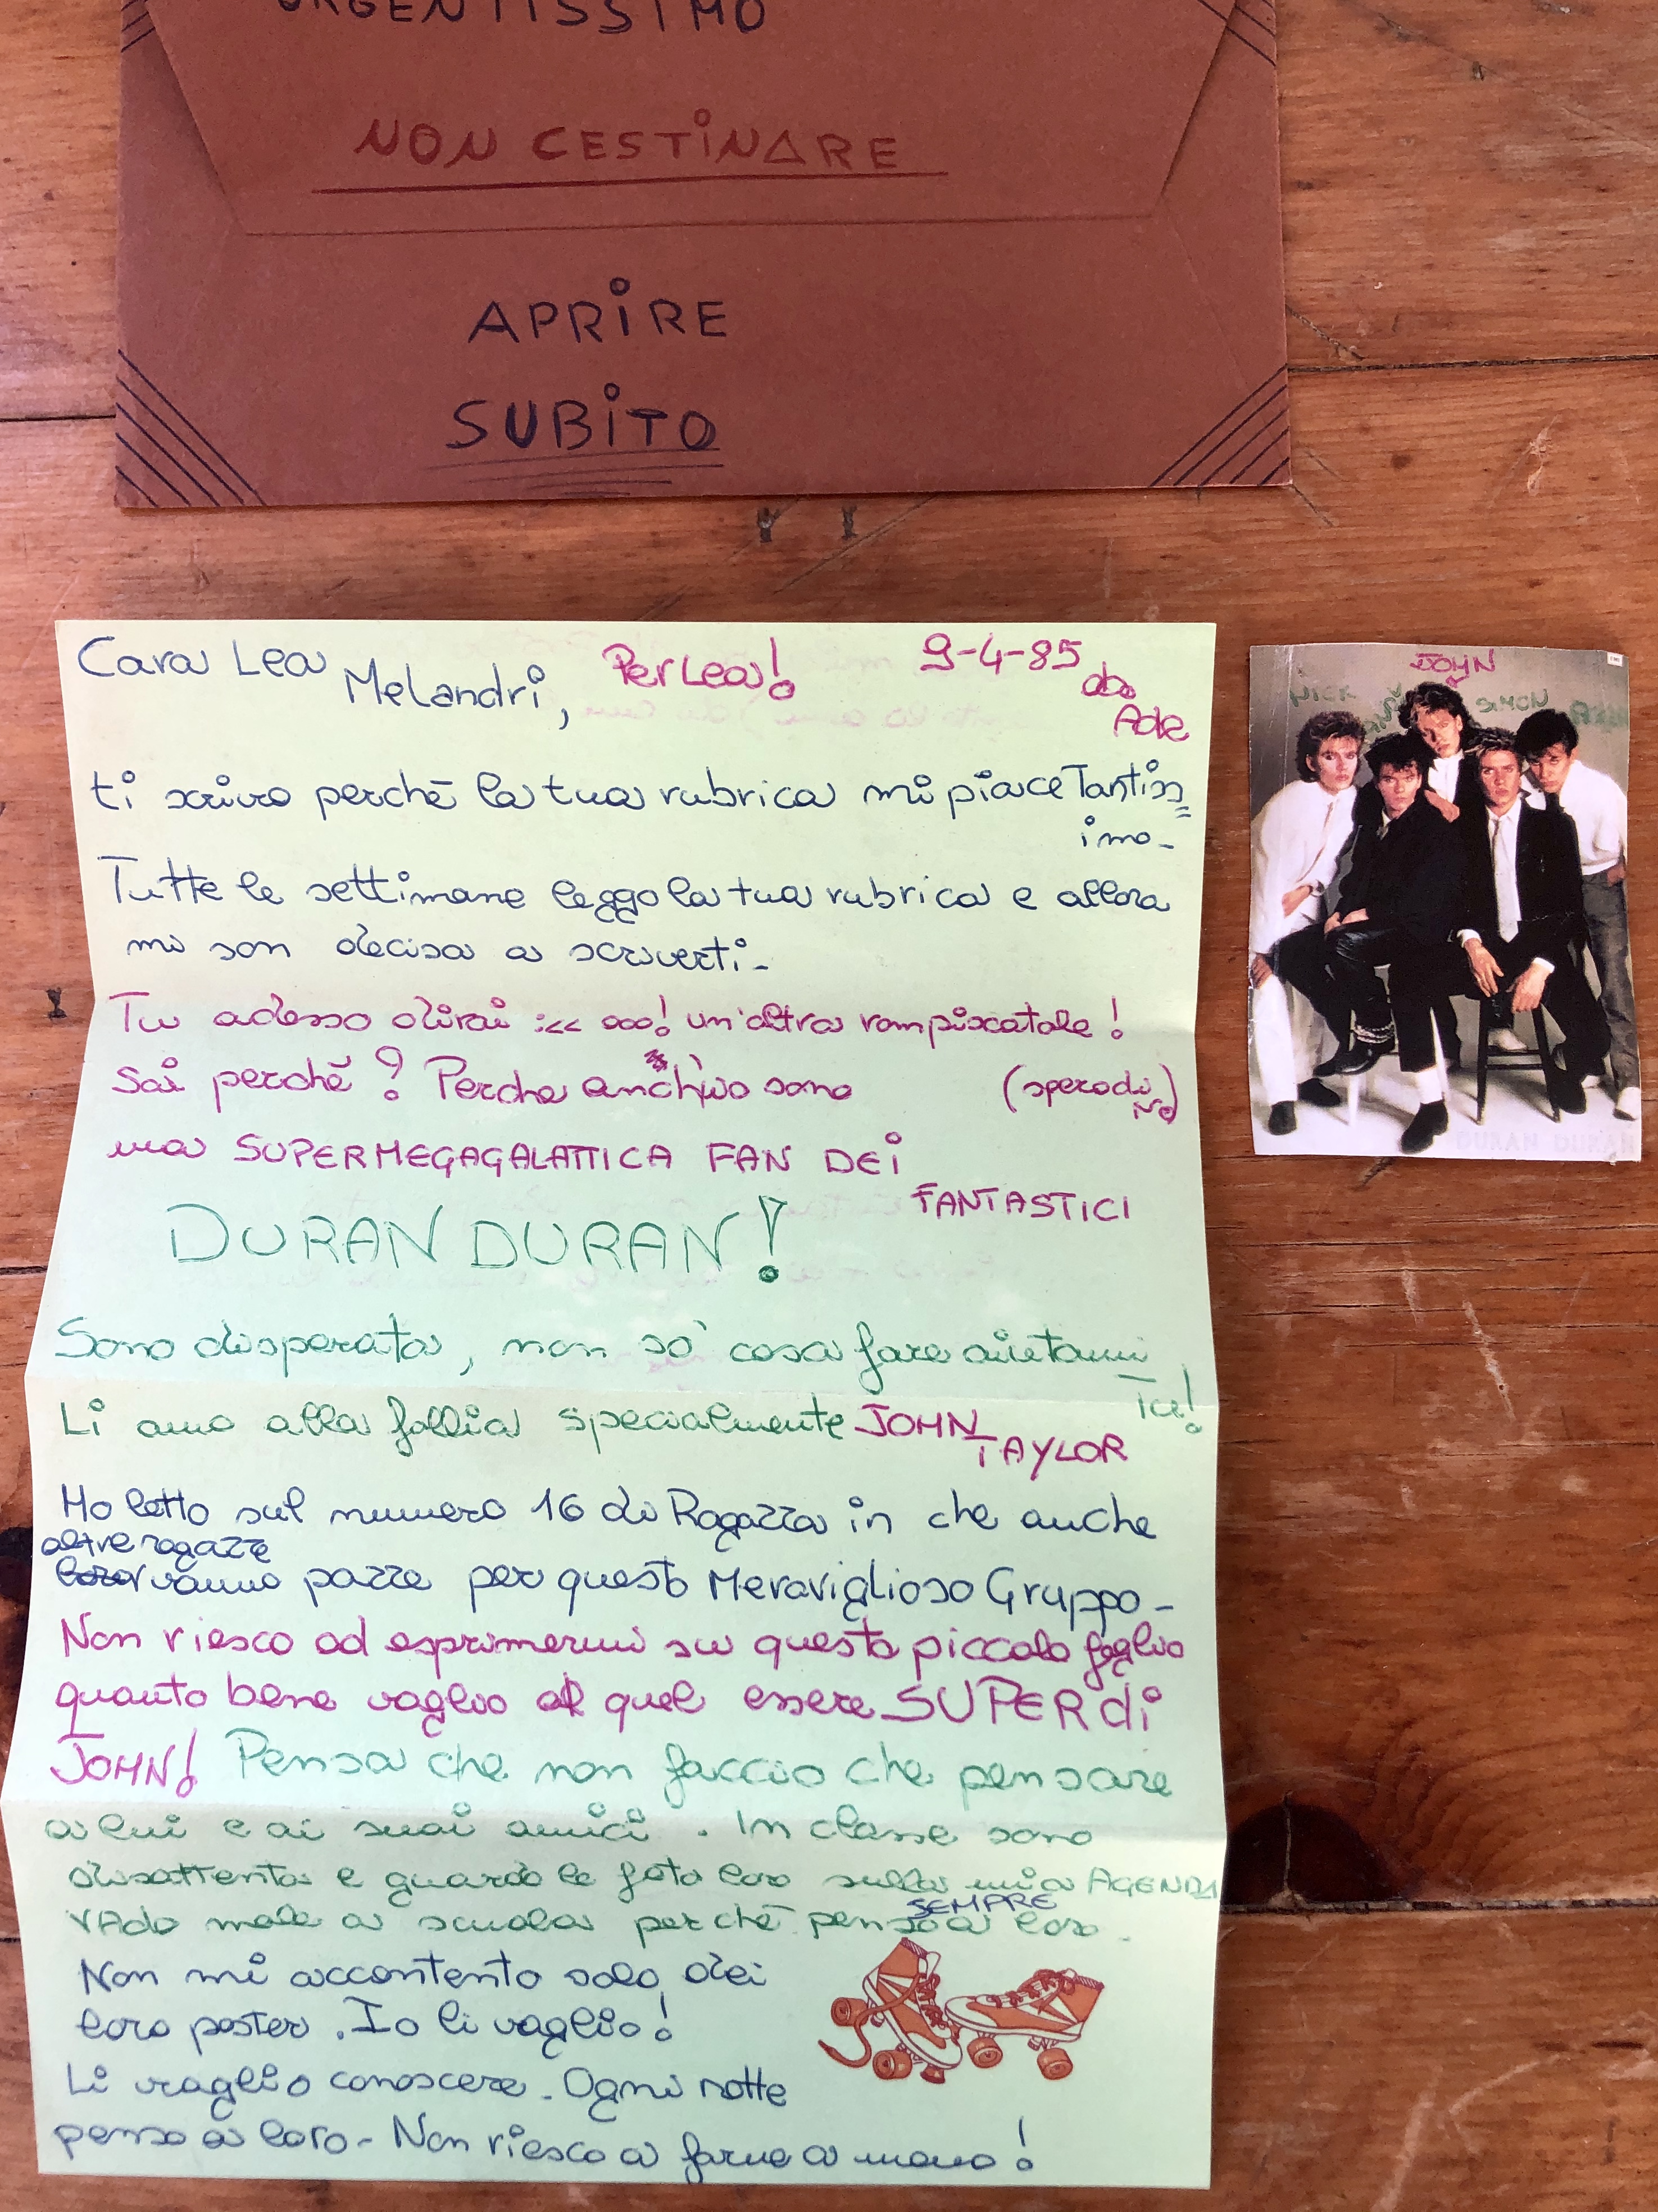 URGENTISSIMO
NON CESTINARE
APRIRE
SUBITO
Cara Lea Melandri, Per Lea! 9-4-85
da Ade
ti scrivo perchè la tua rubrica mi piace Tantiss=
imo-
Tutte le settimane leggo la tua rubrica e allora
mi son decisa a scriverti-
Tu adesso dirai :<< ooo! un'altra rompiscatole!
Sai perchè? Perche anch'io sono (spero di
no)
una SUPERMEGAGALATTICA FAN DEI
FANTASTICI
DURAN DURAN!
Sono disperata, non so' cosa fare aiutami
Te!
Li amo alla follia specialmente JOHN
TAYLOR
Ho letto sul numero 16 di Ragazza in che anche
altre ragazze
loro vanno pazze per questo Meraviglioso Gruppo-
Non riesco ad esprimermi su questo piccolo foglio
quanto bene voglio al quel essere SUPER di
JOHN! Pensa che non faccio che pensare
a lui e ai suoi amici. In classe sono
disattenta e guardo le foto loro sulla mia AGENDA
SEMPRE
VAdo male a scuola perchè penso a loro.
Non mi accontento solo dei
loro poster. Io li voglio!
Li voglio conoscere. Ogni notte
penso a loro- Non riesco a farne a meno!
JOHN
NICK SIMON
DURAN DURAN